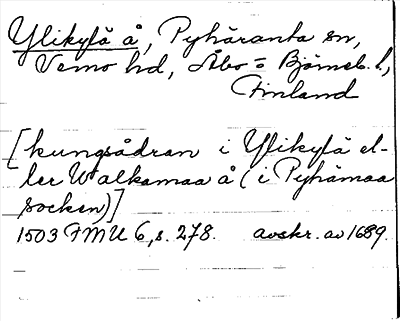 Ylikylä å, Pyhäranta sn,
Vemo hd, Åbo = Björneb. l,
Finland
[kungsådran i Ylikylä el-
ler Walkamaa å (i Pyhämaa
socken)]
1503 FMU 6, s. 278. avskr. av 1689.